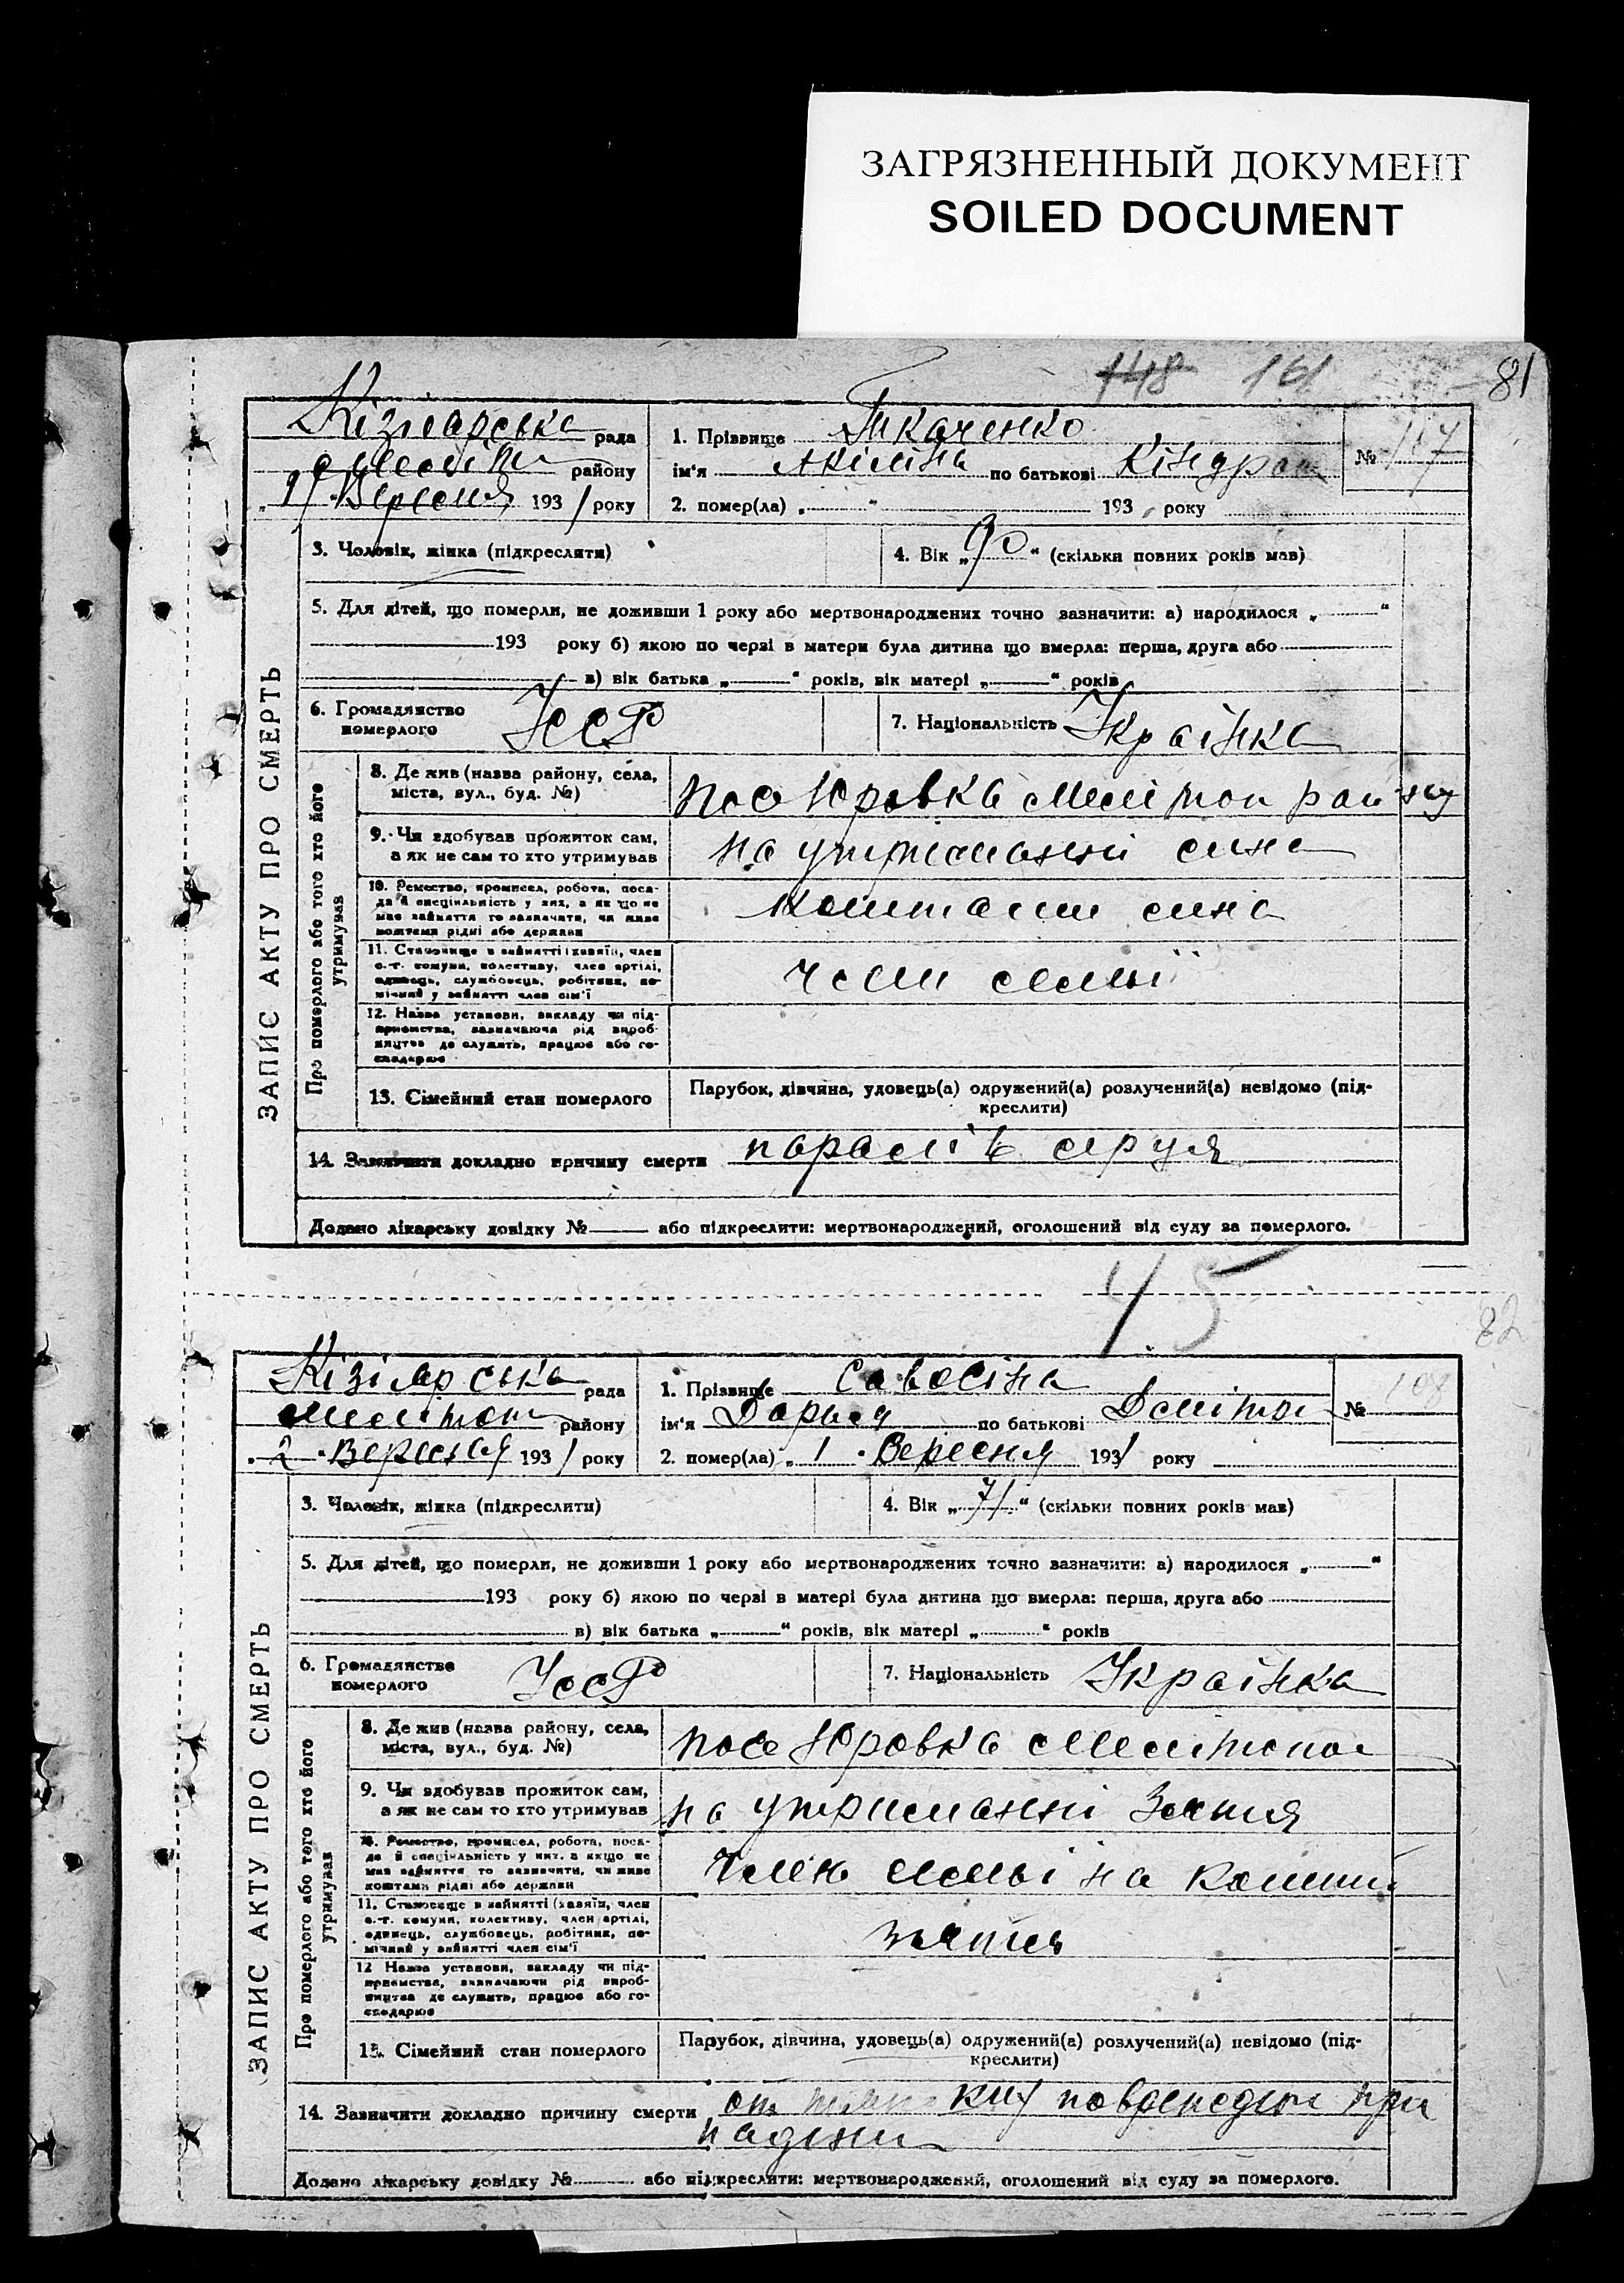 ЗАГРЯЗНЕННЫЙ ДОКУМЕНТ
SOILED DOCUMENT
148 161 81
Кізіярська рада
району
Вересня 1931 року
1. Прізвище Ткаченко
ім'я Акіліна по батькові Кіндрат
№ 117
2. помер(ла) „ “ 193 року
3. Чоловік, жінка (підкреслити)
4. Вік „90“ (скільки повних років мав)
5. Для дітей, що померли, не доживши 1 року або мертвонароджених точно зазначити: а) народилося „ “
193 року б) якою по черзі в матери була дитина що вмерла: перша, друга або
в) вік батька „ “ років, вік матері „ “ років
6. Громадянство померлого УССР
7. Національність Українка
ЗАПИС АКТУ ПРО СМЕРТЬ
Про померлого або того хто його утримував
8. Де жив (назва району, села, міста, вул., буд. №) пос Юровка Меліτοп рай-ну
9. Чи здобував прожиток сам, а як не сам то хто утримував на утриманні сина
10. Ремество, промисел, робота, посада й спеціяльність у них, а як що не мав зайняття то зазначити, чи живе коштами рідні або держави коштами сина
11. Становище в зайнятті (хазяїн, член с.-г. комуни, колективу, член артілі, одинець, службовець, робітник, помічний у зайнятті член сім'ї член семьї
12. Назва установи, закладу чи підприємства, зазначаючи рід виробництва де служить, працює або господарює
13. Сімейний стан померлого
Парубок, дівчина, удовець(а) одружений(а) розлучений(а) невідомо (підкреслити)
14. Зазначити докладно причину смерти параліч
Додано лікарську довідку № або підкреслити: мертвонароджений, оголошений від суду за померлого.
45
82
Кізіярська рада
Мелітоп району
„2“ Вересня 1931 року
1. Прізвище Савосіна
ім'я Дарья по батькові Дмітрі
№ 108
2. помер(ла) „1“ Вересня 1931 року
3. Чоловік, жінка (підкреслити)
4. Вік „71“ (скільки повних років мав)
5. Для дітей, що померли, не доживши 1 року або мертвонароджених точно зазначити: а) народилося „ “
193 року б) якою по черзі в матері була дитина що вмерла: перша, друга або
в) вік батька „ “ років, вік матері „ “ років
6. Громадянство померлого УССР
7. Національність Українка
ЗАПИС АКТУ ПРО СМЕРТЬ
Про померлого або того хто його утримував
8. Де жив (назва району, села, міста, вул., буд. №) пос Юровка Мелітопол
9. Чи здобував прожиток сам, а як не сам то хто утримував на утриманні Зятя
10. Ремество, промисел, робота, посада й спеціяльність у них, а якщо не мав зайняття то зазначити, чи живе коштами рідні або держави член семьі на кошти
11. Становище в зайнятті (хазяїн, член с.-г. комуни, колективу, член артілі, одинець, службовець, робітник, помічний у зайнятті член сім'ї зятя
12 Назва установи, закладу чи підприємства, зазначаючи рід виробництва де служить, працює або господарює
13. Сімейний стан померлого
Парубок, дівчина, удовець(а) одружений(а) розлучений(а) невідомо (підкреслити)
14. Зазначити докладно причину смерти от при
падєнии
Додано лікарську довідку № або підкреслити: мертвонароджений, оголошений від суду за померлого.